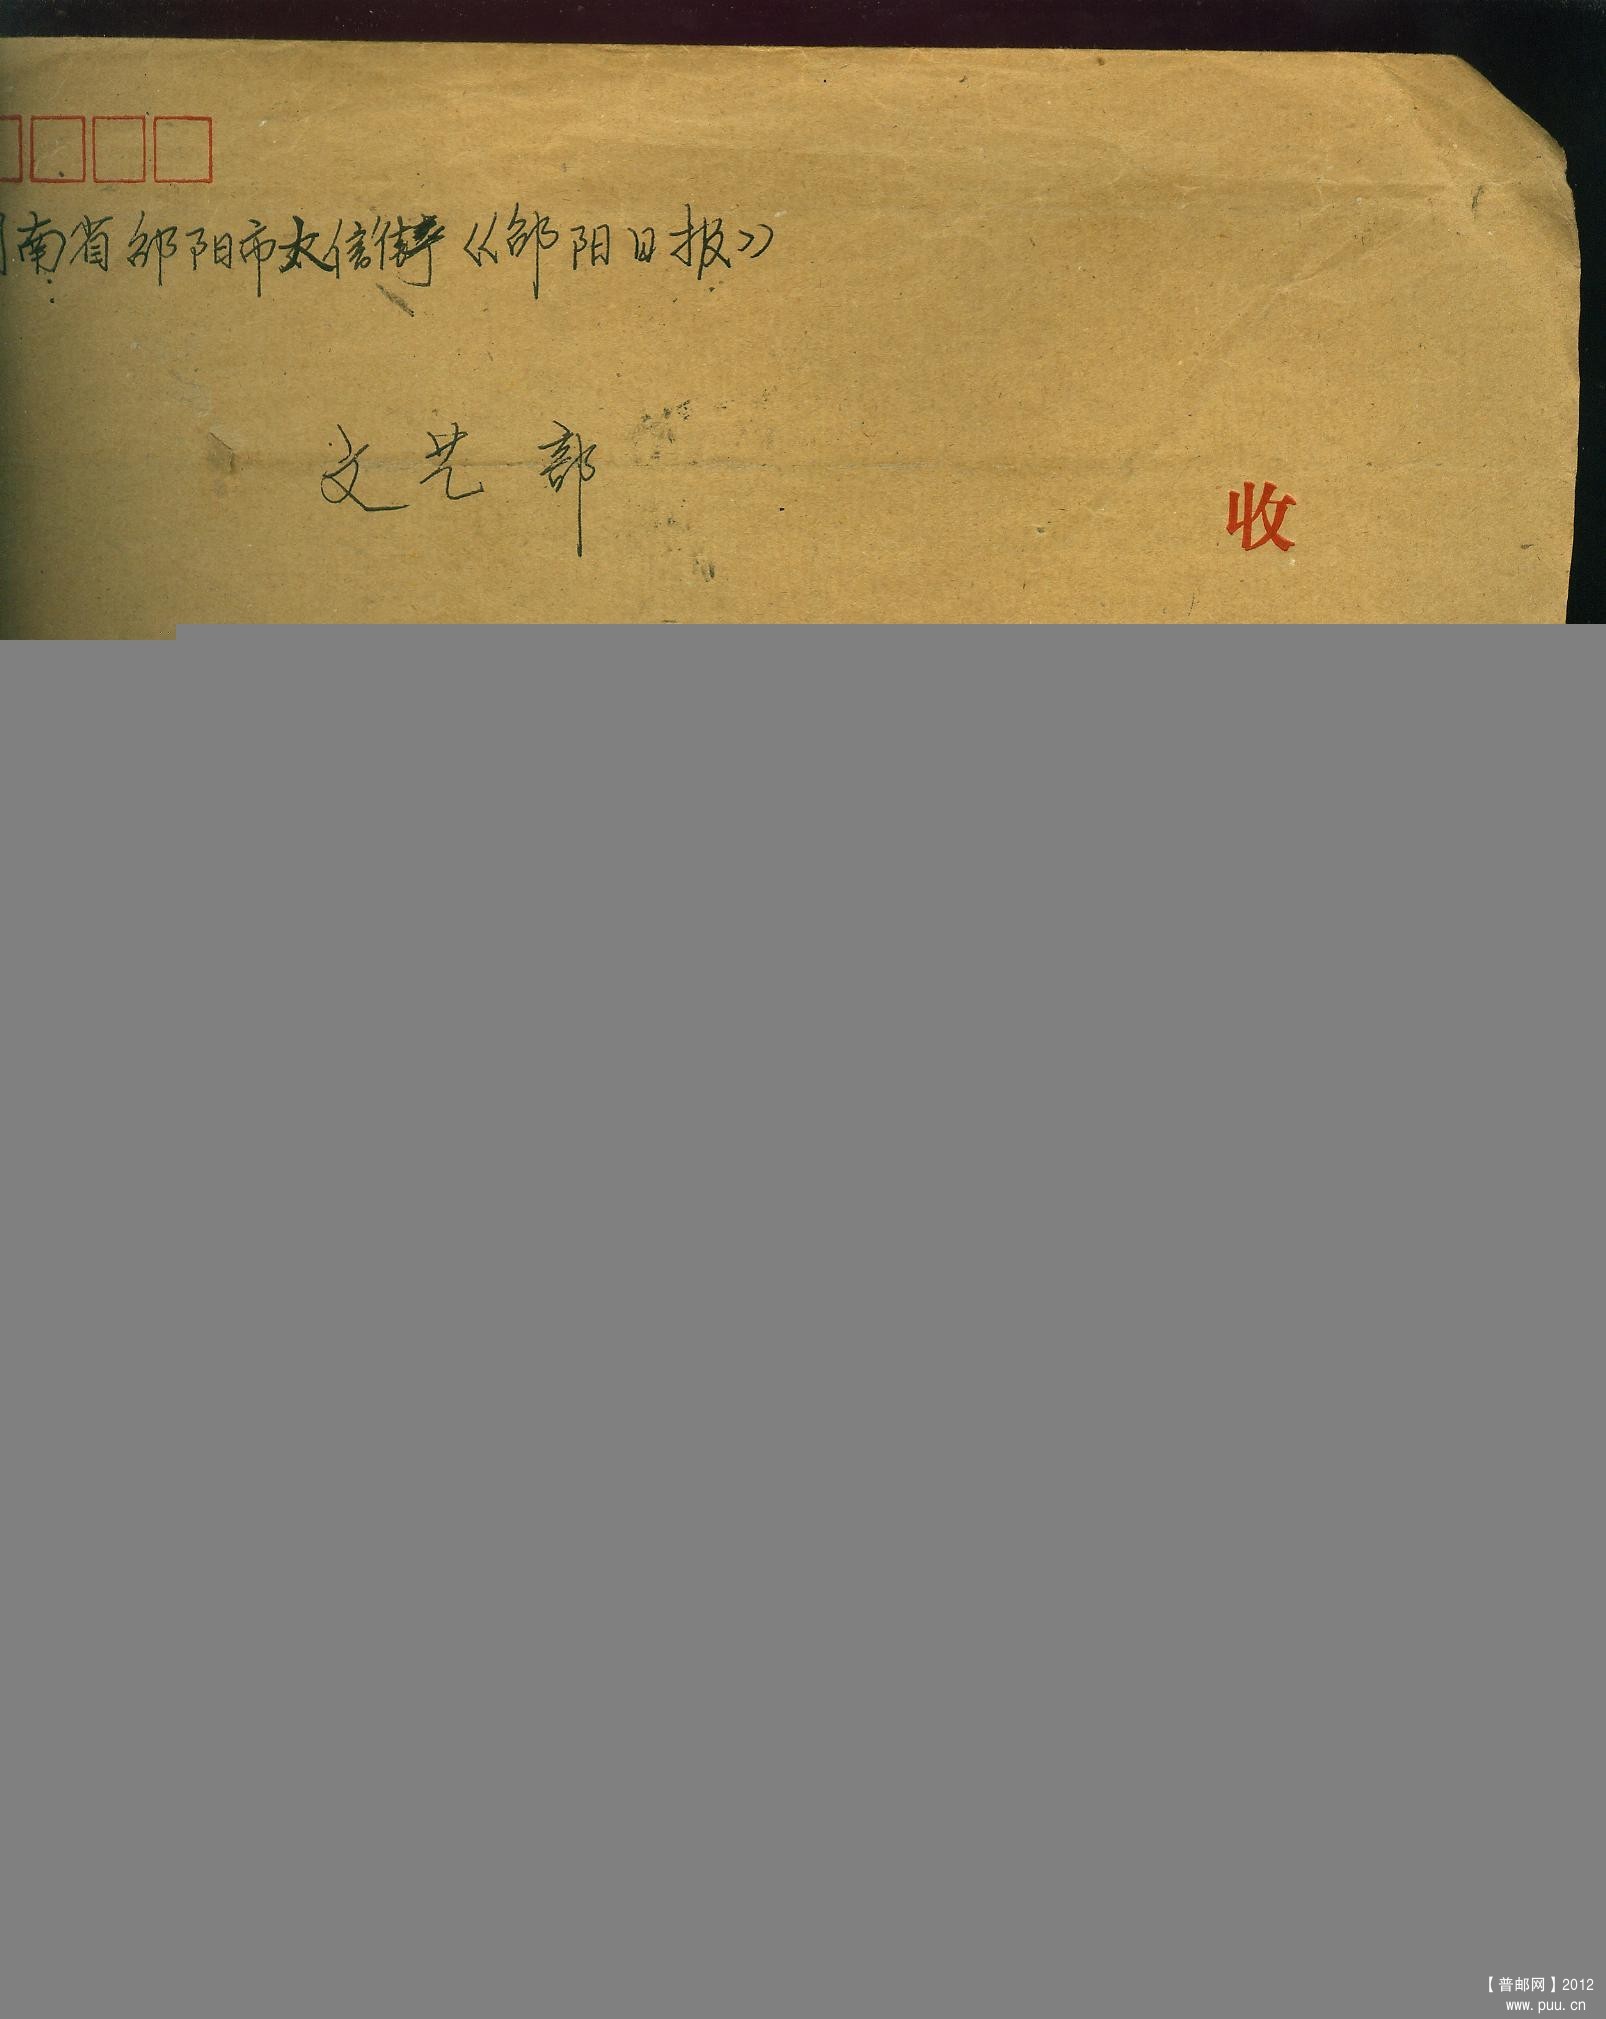 南省邵阳市大信街《邵阳日报》
文艺部
收
【普邮网】2012
www.puu.cn